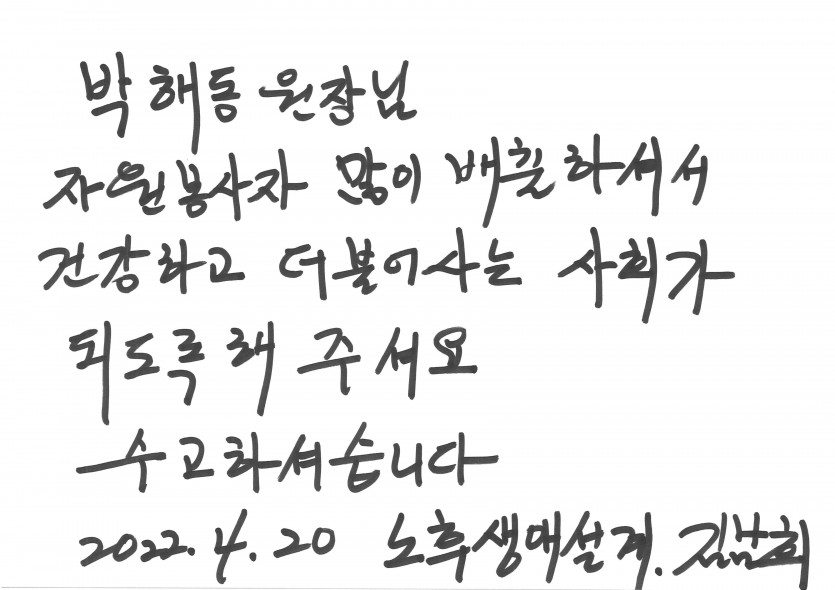 박해동 원장님
자원봉사자 많이 배출하셔서
건강하고 더불어사는 사회가
되도록 해 주셔요
수고하셔습니다
2022.4.20 노후생애설계. 김남희